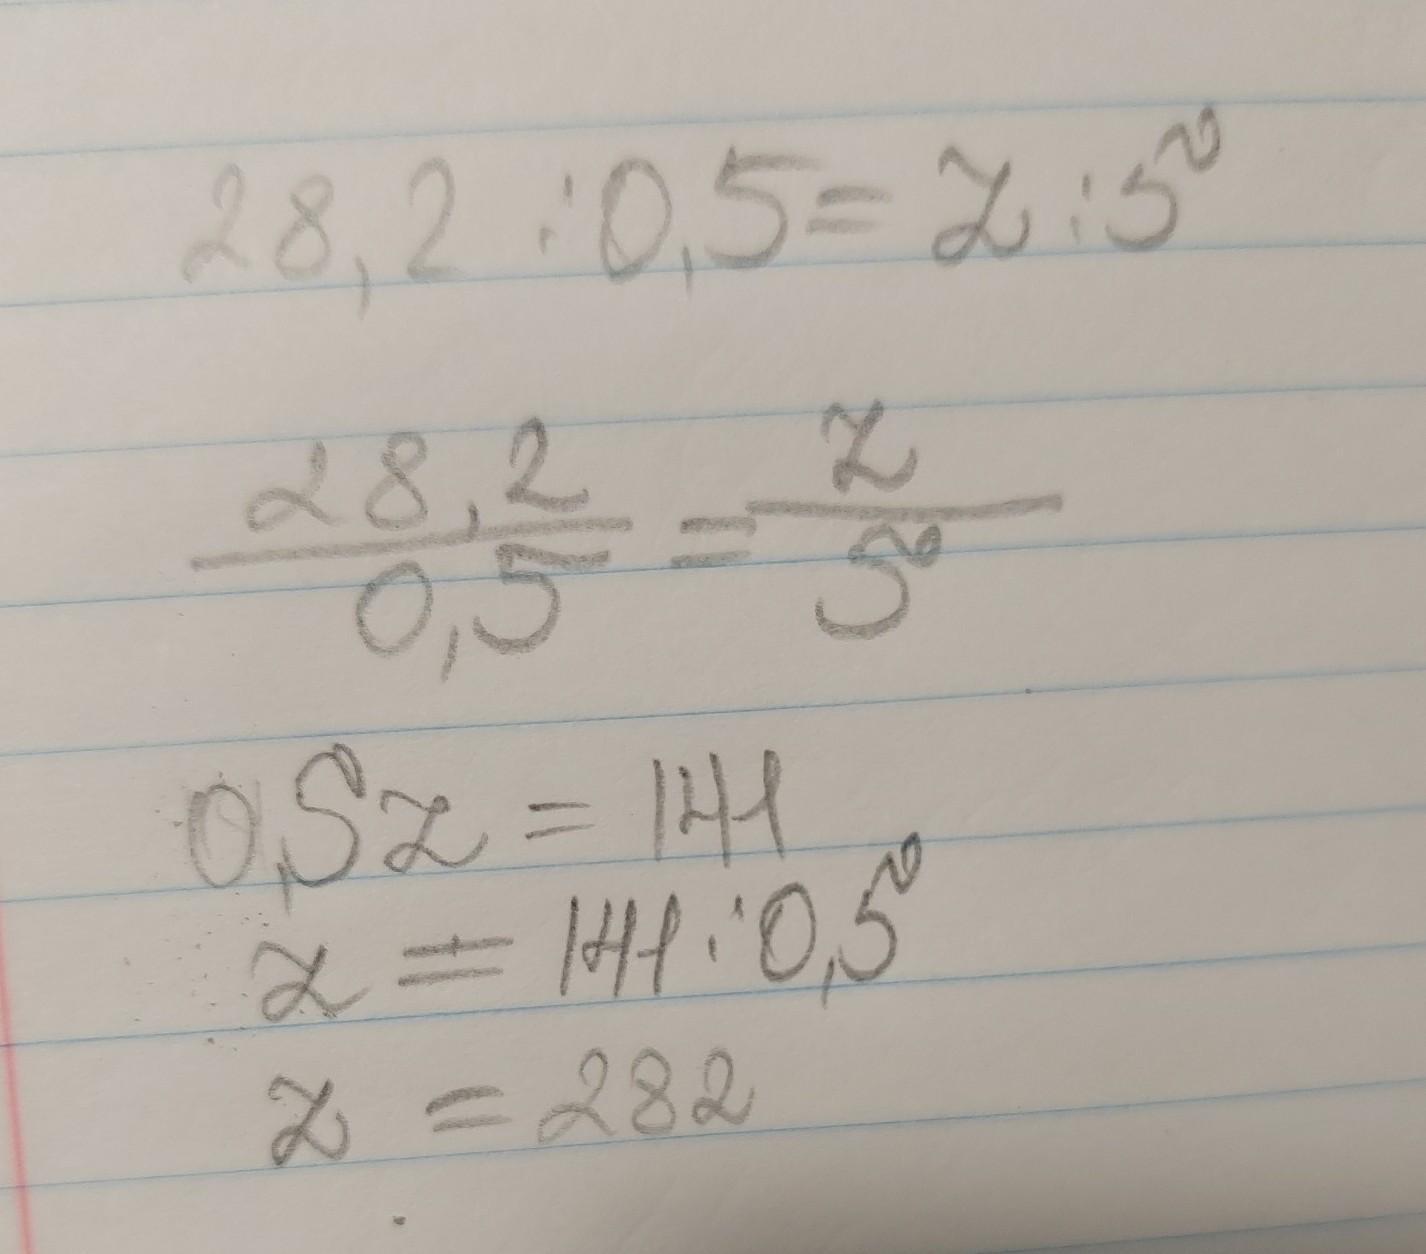 28,2 : 0,5 = z : 5
28,2 / 0,5 = z / 5
0,5z = 141
z = 141 : 0,5
z = 282